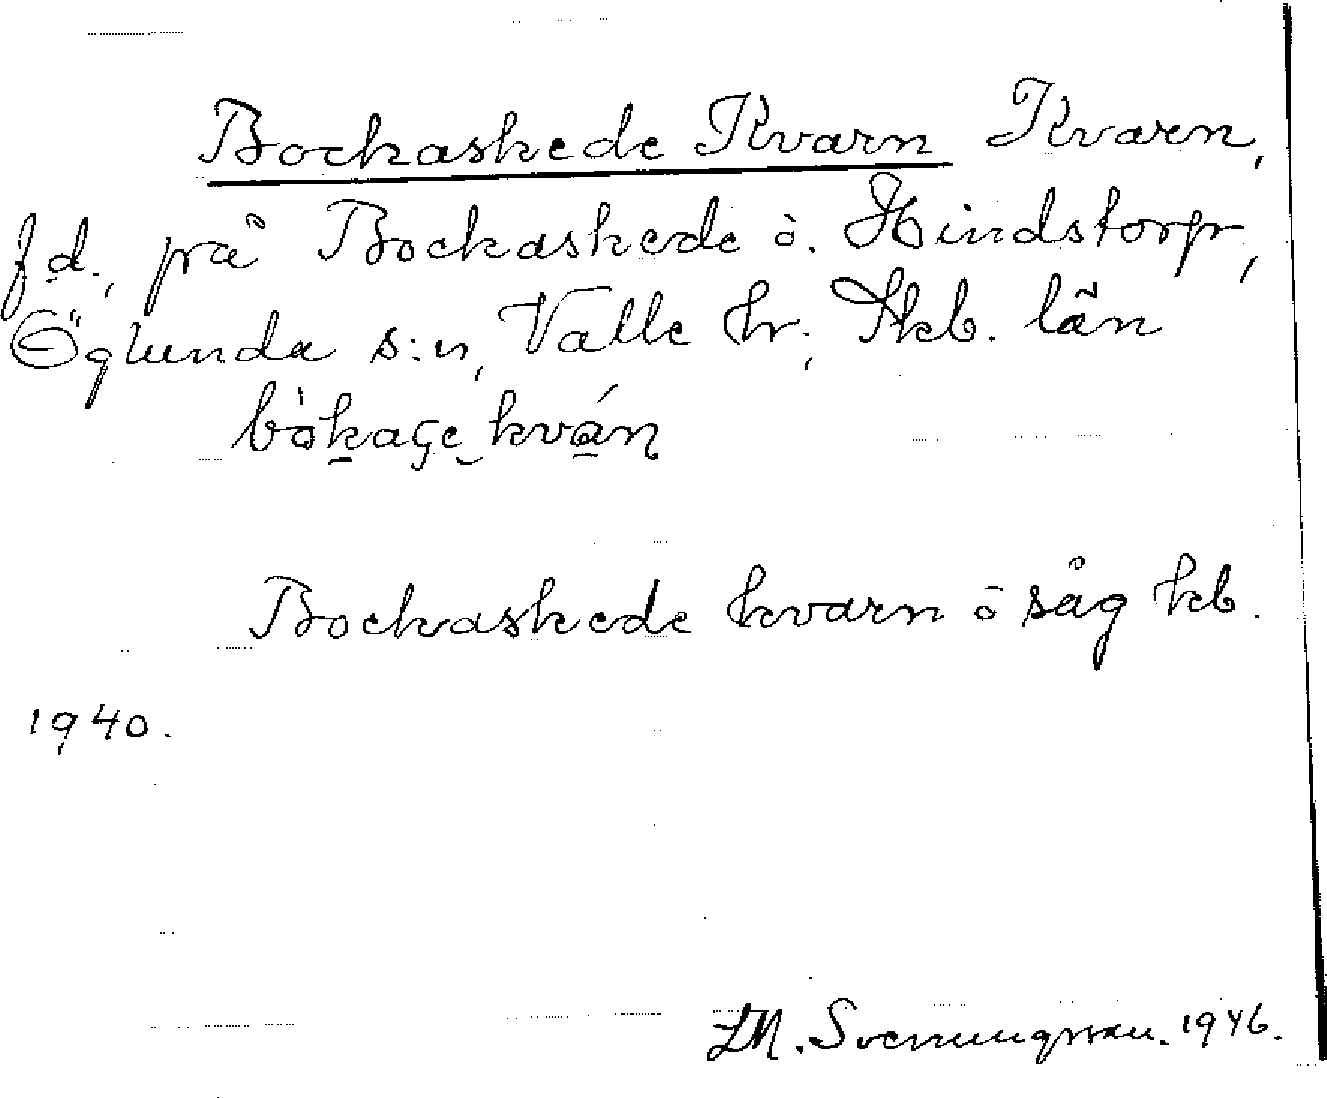 Bockaskede Kvarn Kvarn,
f.d., på Bockaskede ö. Hindstorp,
Öglunda s:n, Valle hr; Skb. län
bòkaçe kván
Bockaskede kvarn ö såg kb.
1940.
LM. Svenungsson. 1946.